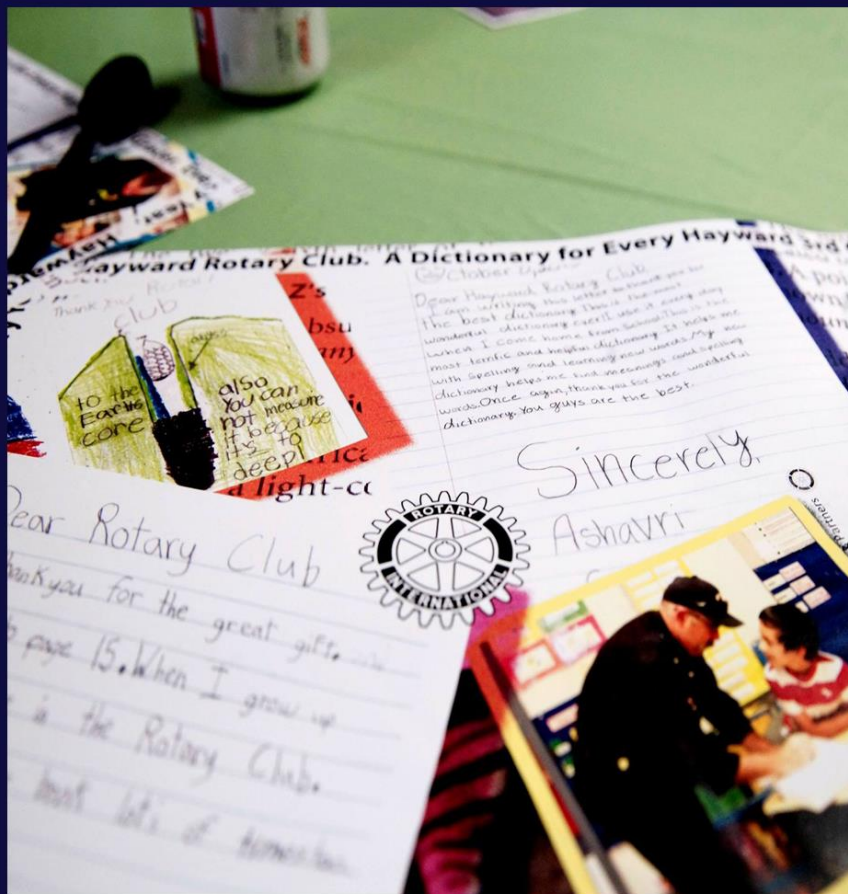 Hayward Rotary Club. A Dictionary for Every Hayward 3rd
Thank you
Club
to the
Earths
core
also
You can
not measure
it because
it's to
deep!
Z's
a light-c
October
Dear Hayward Rotary Club
I am writing this letter to thank you for
the best dictionary. This is the most
wonderful dictionary ever! I'll use it every day
when I come home from school. This is the
most terrific and helpful dictionary. It helps me
with spelling and learning new words. My new
dictionary helps me find meanings and spelling
words. Once again, thank you for the wonderful
dictionary. You guys are the best.
Sincerely,
Ashavri
ROTARY
INTERNATIONAL
Dear Rotary Club
Thank you for the great gift.
page 15. When I grow up
is the Rotary Club.
lots of
Partners